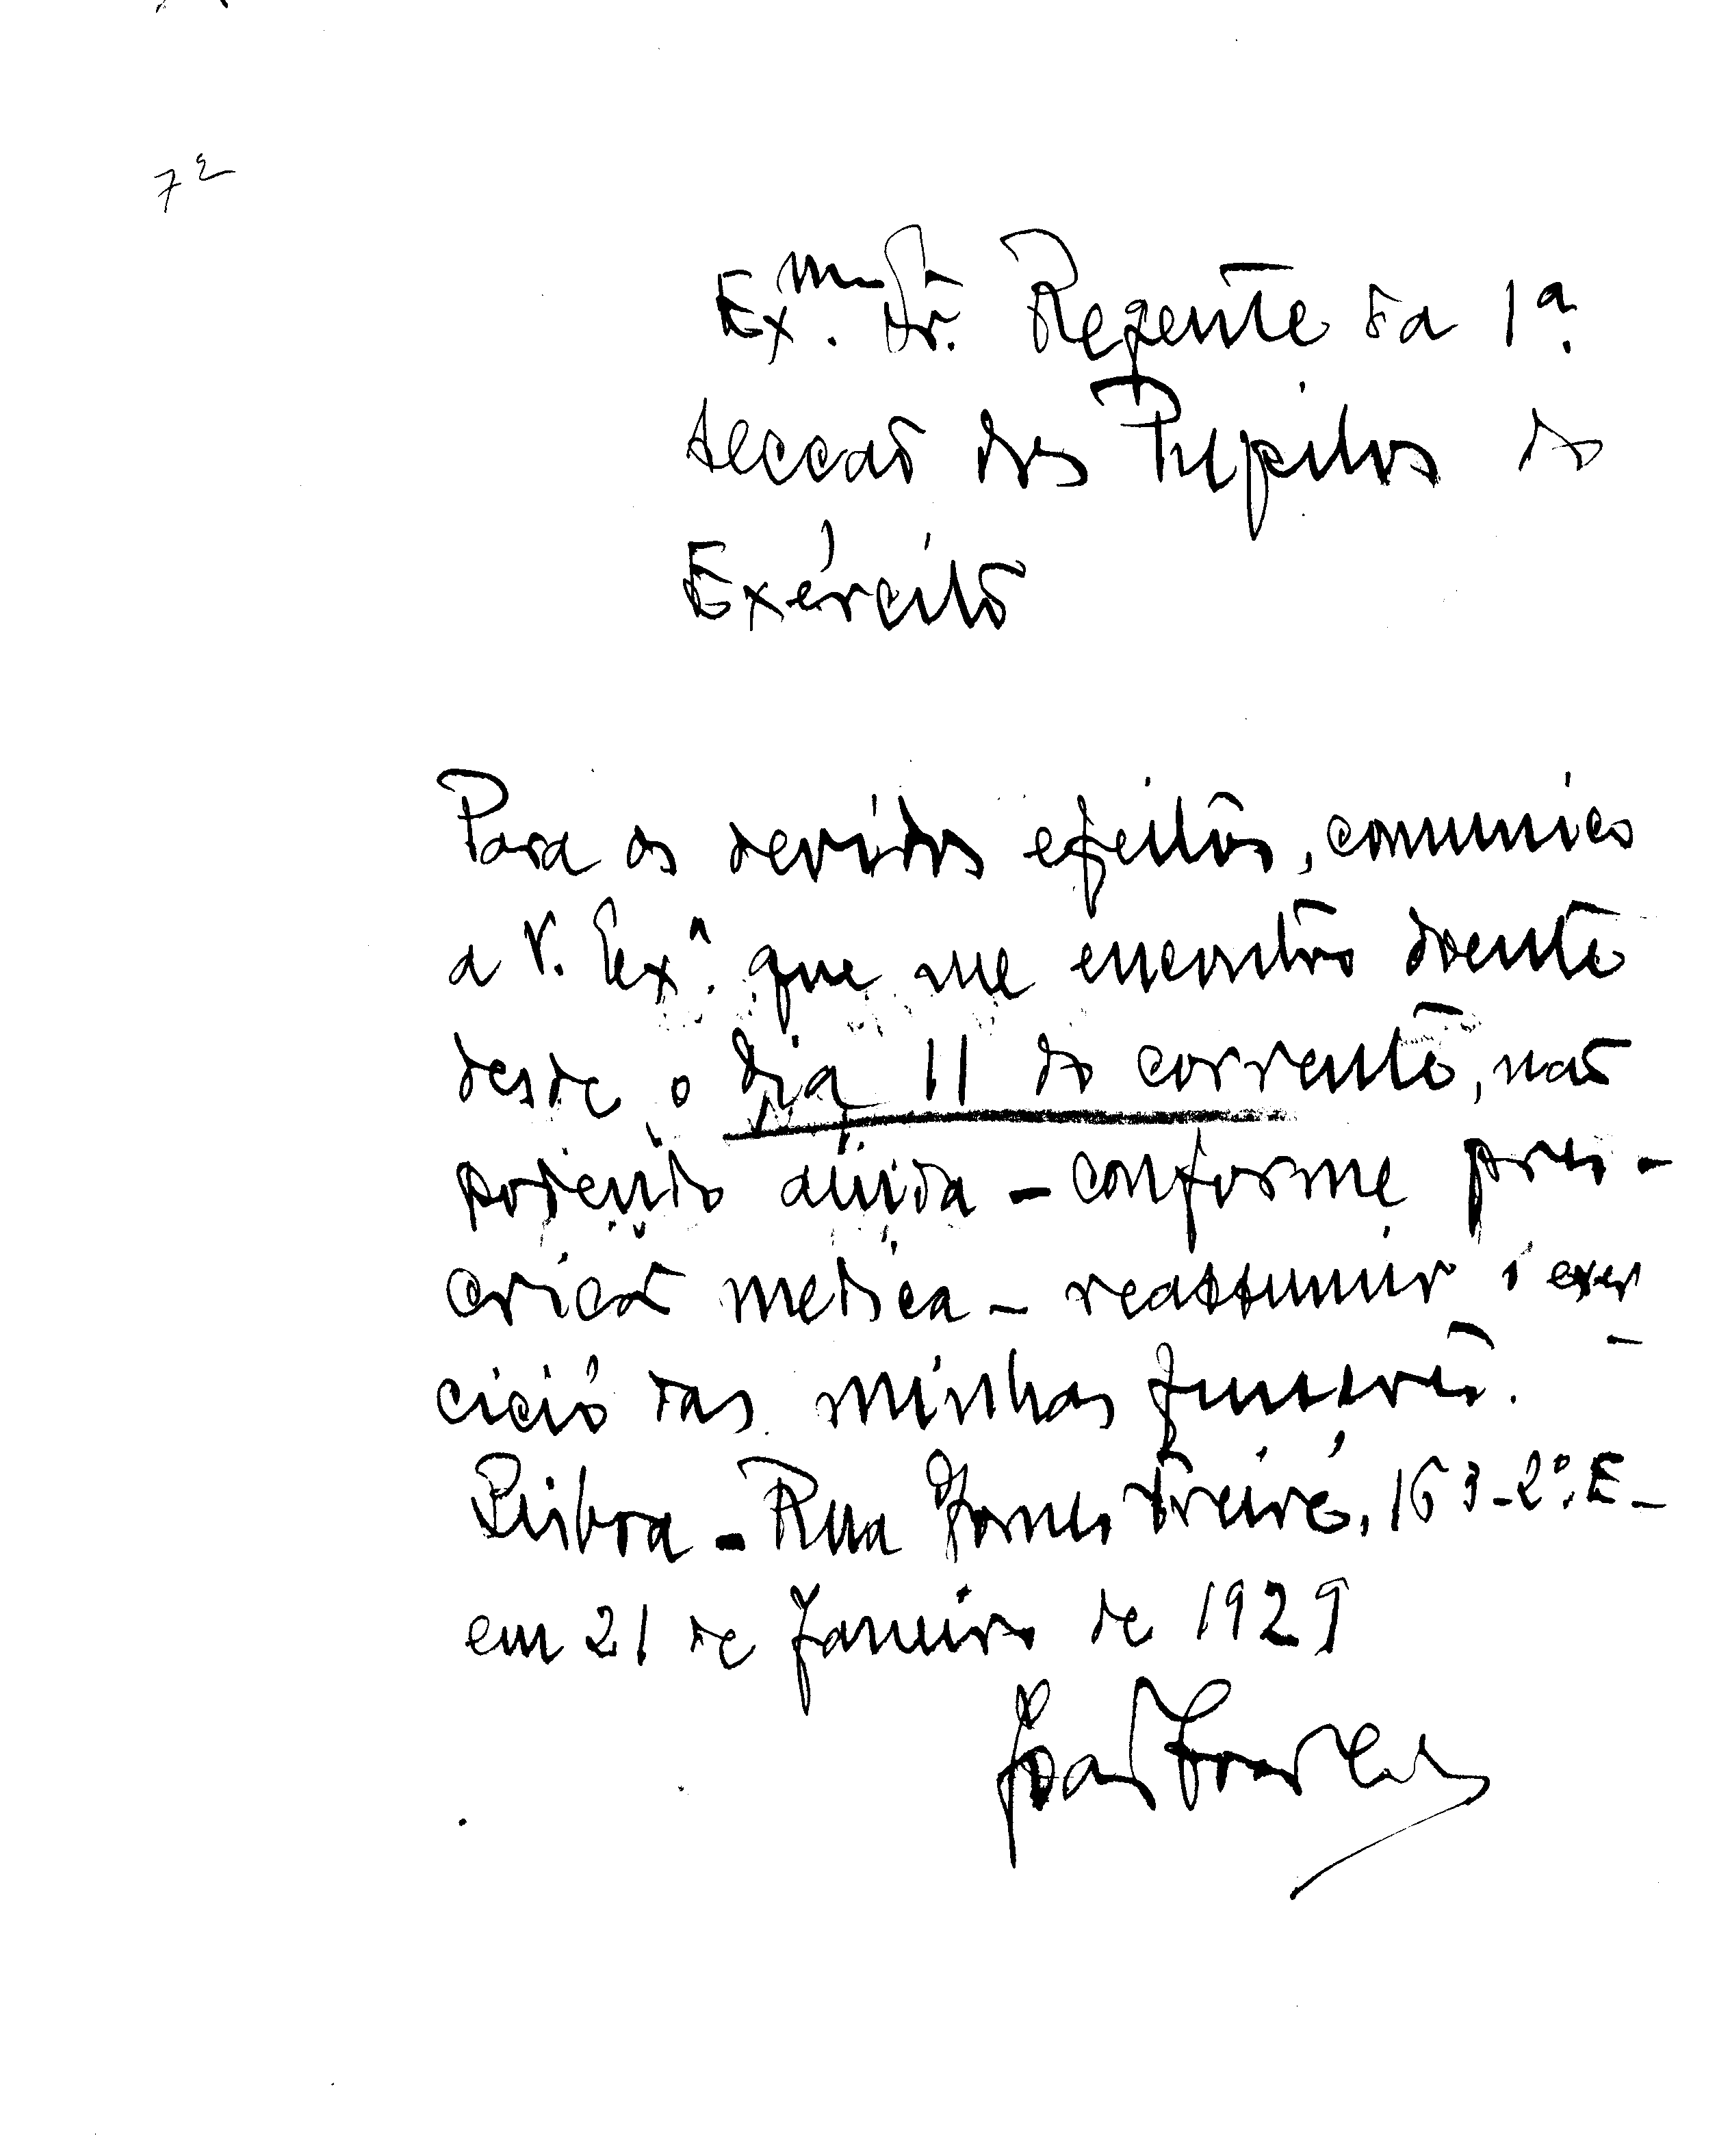 72
Exmo. Sr. Regente da 1ª.
secção dos Pupilos do
Exército
Para os devidos efeitos, comunico
a V. Exª. que me encontro doente
desde o dia 11 do corrente, não
podendo ainda - conforme pres-
crição medica - reassumir o exer
cicio das minhas funções.
Lisboa - Rua Gomes Freire, 163-2º. E-
em 21 de Janeiro de 1929
João